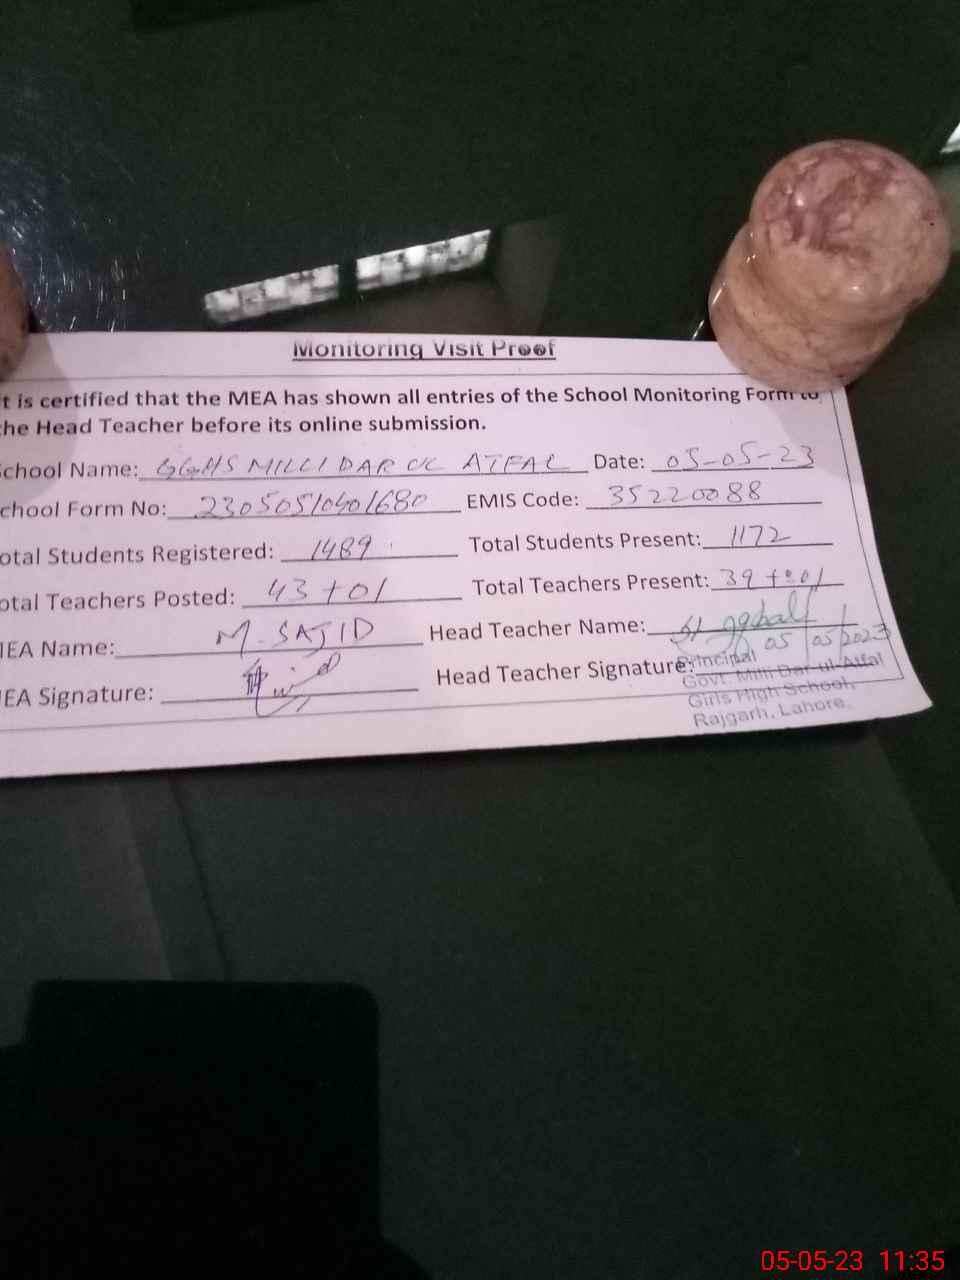 Monitoring Visit Proof
t is certified that the MEA has shown all entries of the School Monitoring Form to
he Head Teacher before its online submission.
chool Name: GGHS MILLI DAR UL ATFAL Date: 05-05-23
chool Form No: EMIS Code: 35220088
otal Students Registered: 1489 Total Students Present: 1172
otal Teachers Posted: 43+01 Total Teachers Present: 39+01
EA Name: M. SAJID Head Teacher Name:
05/05/2023
EA Signature: Head Teacher Signature:
Principal
Govt. Milli Dar-ul-Atfal
Girls High School,
Rajgarh, Lahore.
05-05-23 11:35